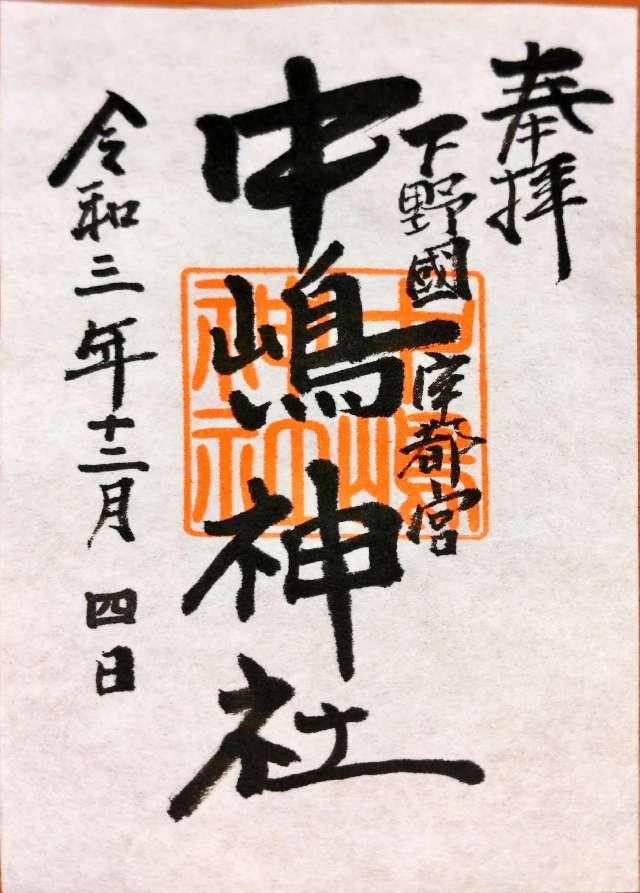 奉拝
下野國 宇都宮
中嶋神社
令和三年十二月 四日
中嶋
神社